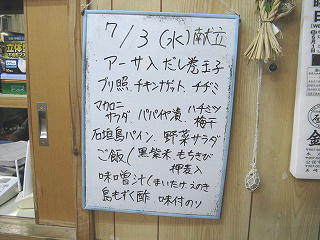 7/3(水)献立
アーサ入だし巻玉子
ブリ照、チキンナゲット、チヂミ
マカロニサラダ、パパイヤ漬、ハチミツ梅干
石垣島パイン、野菜サラダ
ご飯(黒紫米 もちきび 押麦入
味噌汁(まいたけ えのき
島もずく酢 味付のり